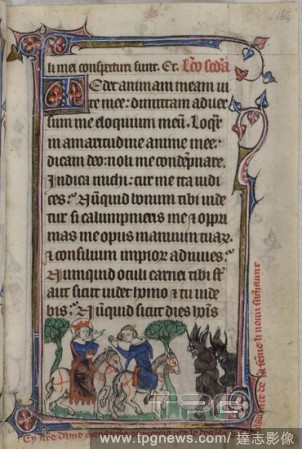 li mei conspectui sunt.
Tedet animam meam ui
te mee: dimittam aduer
sum me eloquium meū. Loqr̄
in amaritudine anime mee:
dicam deo: noli me condēpnare.
Indica michi: cur me ita iudi
ces. Nūquid bonum tibi uide
tur si calumpnieris me et oppri
mas me opus manuum tuarꝝ
et consilium impioꝝ adiuues.
Nunquid oculi carnei tibi sūt
aut sicut uidet homo et tu uide
bis. Nūquid sicut dies hoīs
www.tpgnews.com/ 達志影像